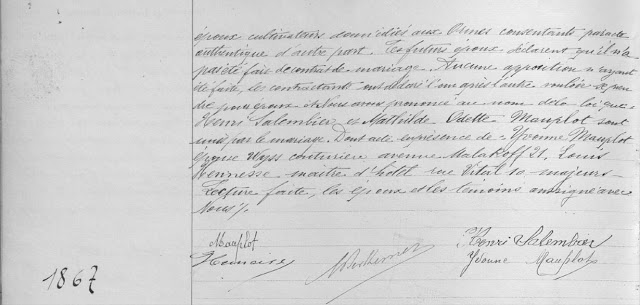 époux cultivateurs domiciliés aux Ormes consentants par acte
authentique d'autre part. Les futurs époux déclarent qu'il n'a
pas été fait de contrat de mariage. Aucune opposition n'ayant
été faite, les contractants ont déclaré l'un après l'autre vouloir se pren
dre pour époux et Nous avons prononcé au nom de la loi que
Henri Salembier, et Mathilde Odette Mauplot sont
unis par le mariage. Dont acte en présence de Yvonne Mauplot
épouse Wyss couturière avenue Malakoff 21, Louis
Hennesse maître d'hôtel rue Vital 10 majeurs
Lecture faite, les époux et les témoins ont signé avec
Nous %
Mauplot
Henri Salembier
Yvonne Mauplot
1867